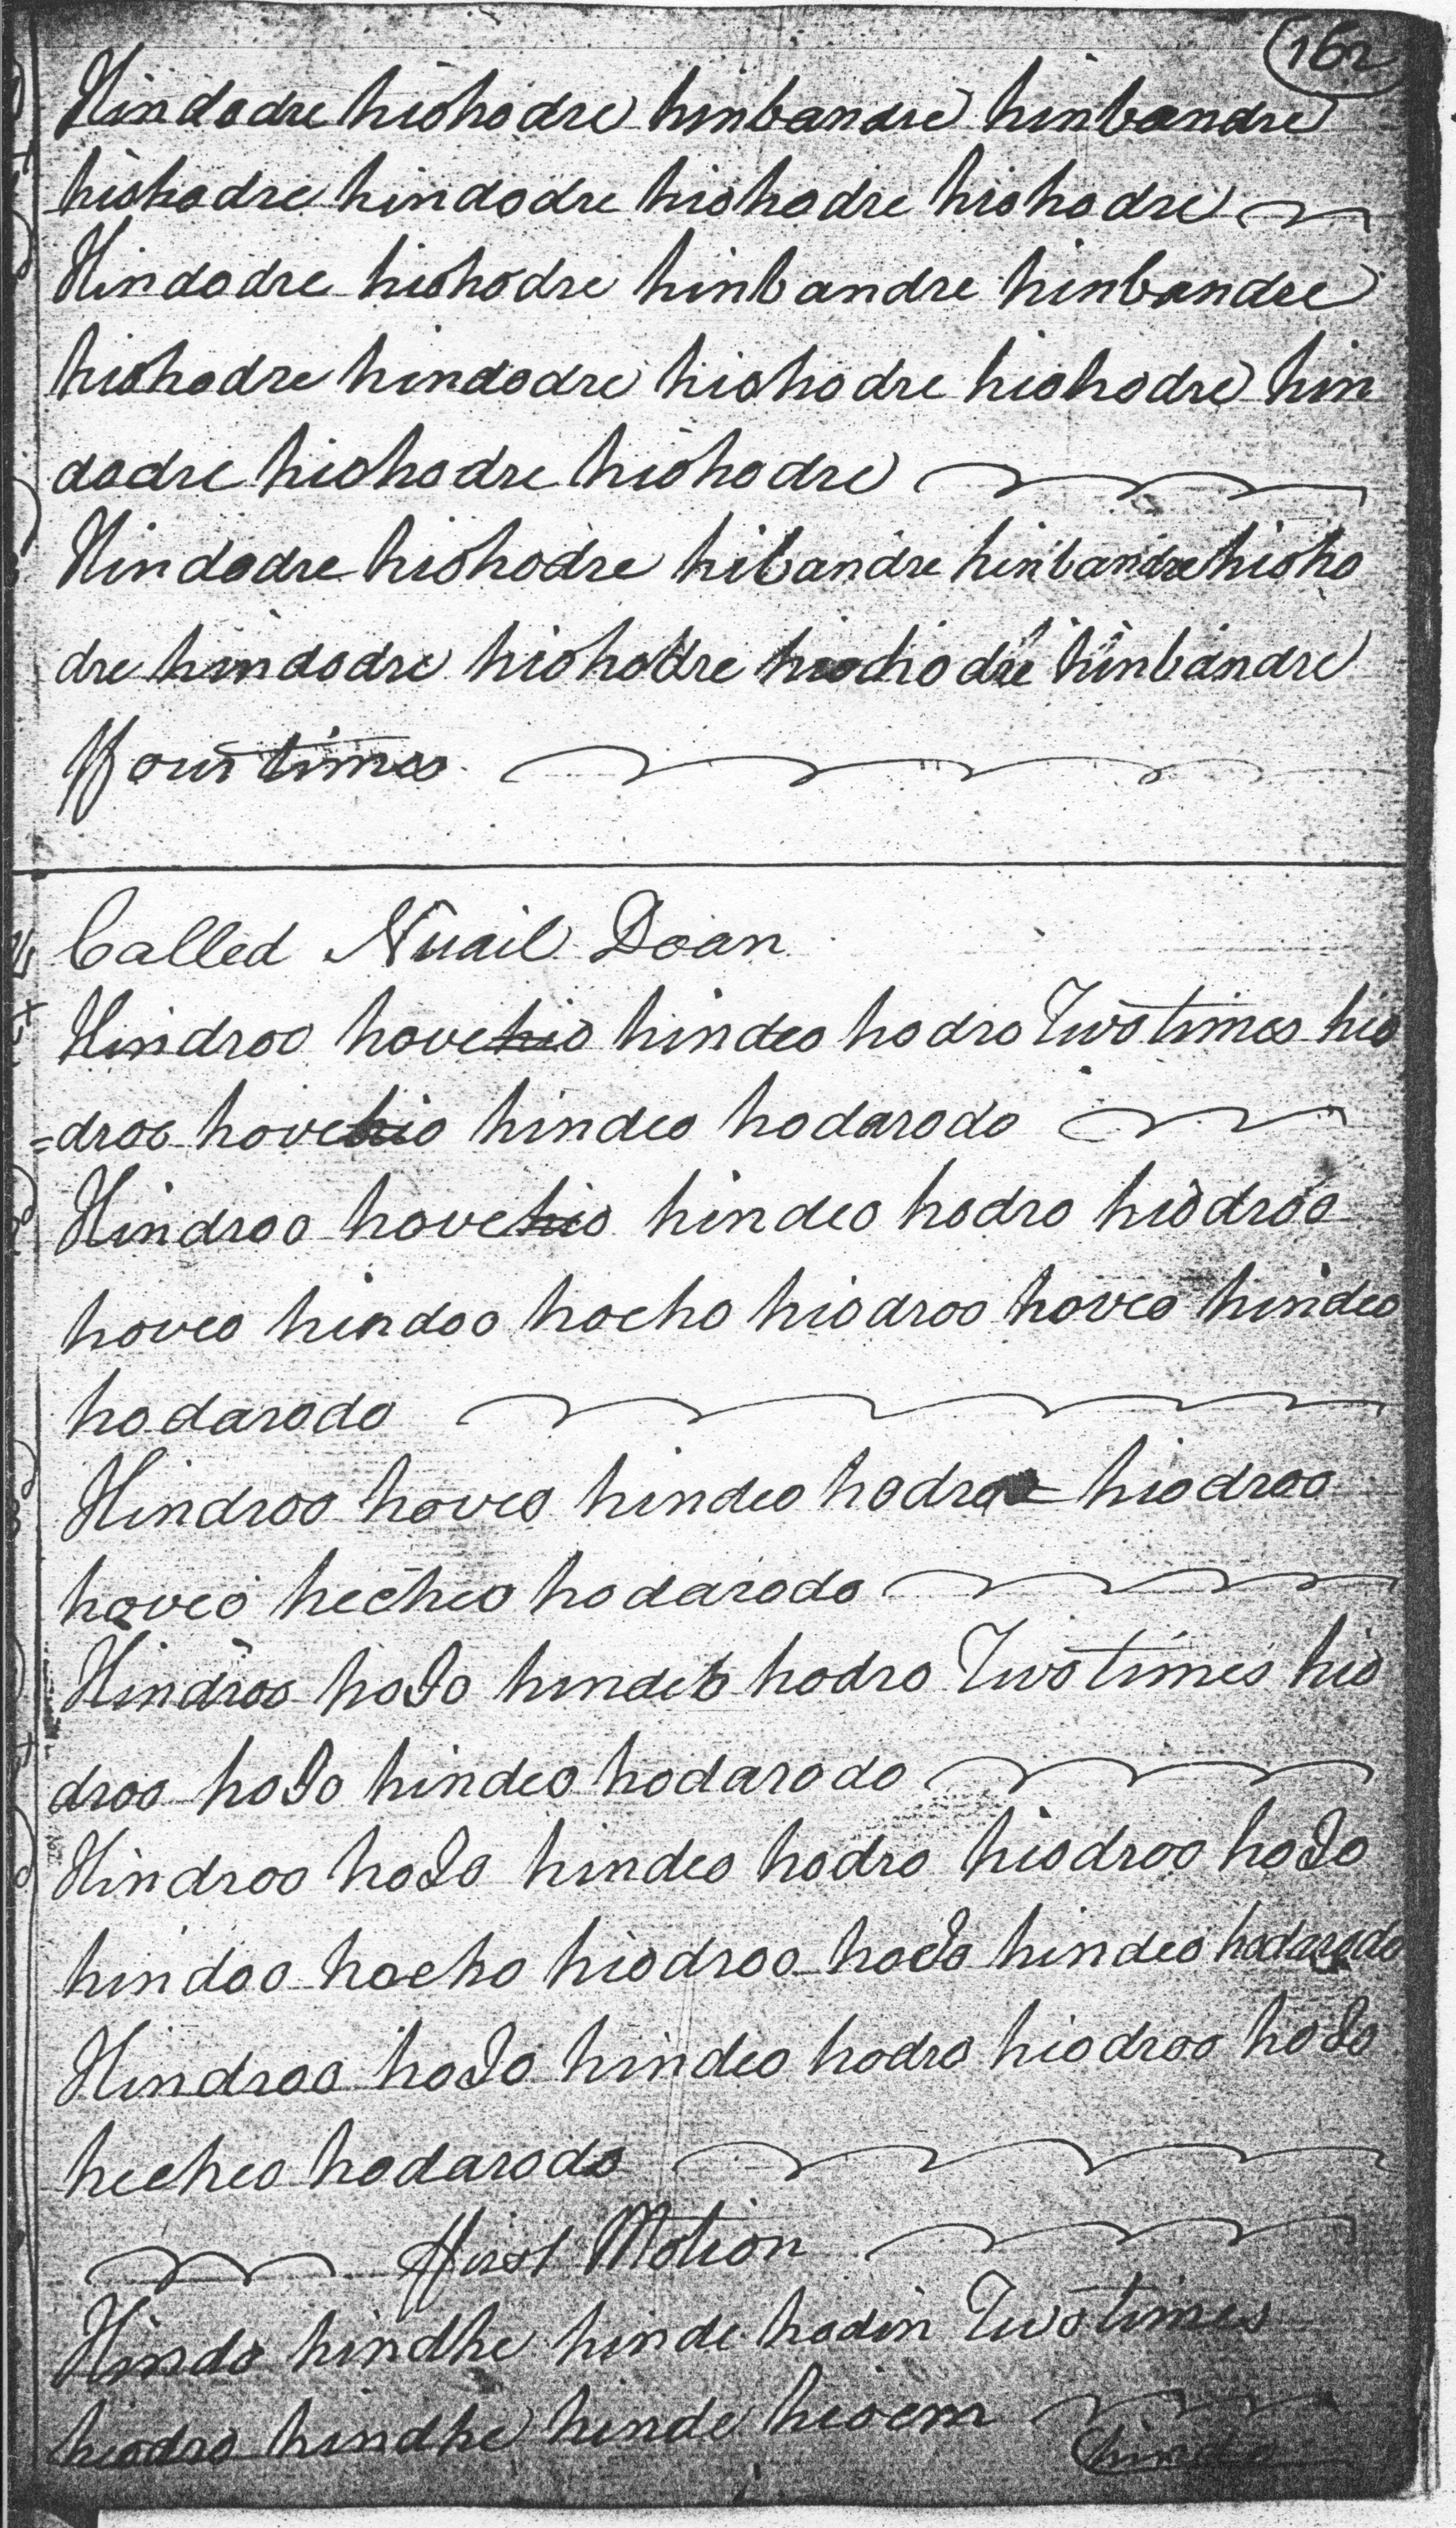 162
Hindodre hiohodre hinbandre hinbandre
hiohodre hindodre hiohodre hiohodre
Hindodre hiohodre hinbandre hinbandre
hiohodre hindodre hiohodre hiohodre hin
dodre hiohodre hiohodre
Hindodre hiohodre hibandre hinbandre hioho
dre hindodre hiohodre hiohodre hinbandre
Four times
Called Nuail Doan
Hindroo hovehio hindeo hodro Two times hio
=droo hovehio hindeo hodarodo
Hindroo hovehio hindeo hodro hiodroo
hoveo hindoo hocho hiodroo hoveo hindeo
hodarodo
Hindroo hoveo hindeo hodro = hiodroo
hoveo hecheo hodarodo
Hindroo hoIo hindeo hodro Two times hio
droo hoIo hindeo hodarodo
Hindroo hoIo hindeo hodro hiodroo hoIo
hindoo hocho hiodroo hoIo hindeo hodarodo
Hindroo hoIo hindeo hodro hiodroo hoIo
hecheo hodarodo
First Motion
Hindo hindhe hinde hodin Two times
hiodro hindhe hinde hioem
hindo